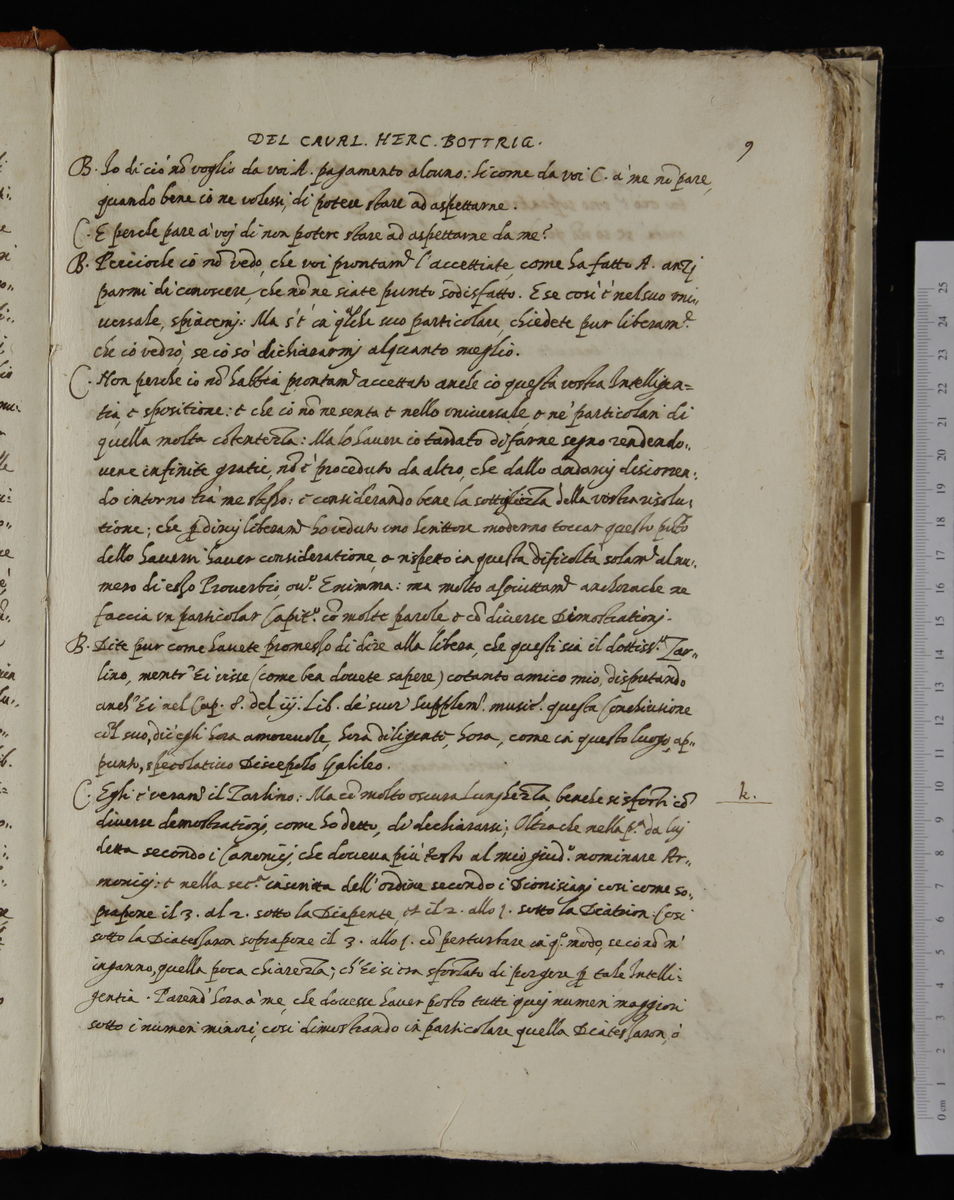 DEL CAVAL. HERC. BOTTRIG. 9
B. Io di ciò nõ voglio da voi A. pagamento alcuno: Si come da voi C. à me nõ pare,
quando bene io ne volessi, di potere stare ad aspettarne.
C. E perche pare à voj di non potere stare ad aspettarne da me?
B. Percioche io nõ vedo, che voi prontam.e l'accettiate, come ha fatto A. anzj
parmi di conoscere, che nõ ne siate punto sodisfatto. E se così è nel suo uni-,
versale, spiacemj: Ma s'è in q̃lche suo particolare, chiedete pur liberam.e
che io vedrò, se io sò dichiararmj alquanto meglio.
C. Non perche io nõ habbia prontam.e accettato anche io questa vostra Intelligen=
tia, e spositione: e che io nõ ne senta e nello universale, e ne' particolari di
quella molta cõtentezza: Ma lo havere io tardato di farne segno rendendo-,
vene infinite gratie, nõ è proceduto da altro, che dallo andarmj discorren-,
do intorno trà me stesso: e considerando bene la sottigliezza della vostra risolu-,
tione; che p̲ dirvj liberam.e ho veduto uno scrittore moderno toccar questo pũto
dello haversi haver consideratione, e rispetto in questa dificoltà solam.e al nu-,
mero di esso Proverbio, ov.o Enimma: ma molto asciuttam.e anchorache ne
faccia un particolar Capit.o cõ molte parole e cõ diverse Dimostrationj.
B. Dite pur come havete promesso di dire alla libera, che questi sia il dottiss.o Zar-,
lino, mentr' Ei visse (come ben dovete sapere) cotanto amico mio, disputando
anch' Ei nel Cap. 8. del iij. Lib. de' suoi Supplem.i music.i questa Conchiusione
cõ'l suo, dic' egli hora amorevole, hora diligente, hora, come in questo luogo ap-,
punto, specolativo Discepolo Galileo.
C. Egli è veram.e il Zarlino: Ma cõ molto oscura lunghezza, benche si sforzi cõ k.
diverse demostrationj, come ho detto, di dechiararsi; Oltrache nella p.a da lui
detta secondo i Canonicj, che doveva più tosto al mio giud.o nominare Ar-,
monicj: e nella sec.a inscritta dell'ordine secondo i Dionisianj così come so-,
prapone il 3. al 2. sotto la Diapente, et il 2. allo 1. sotto la Diapason. Così
sotto la Diatessaron soprapone il 3. allo 1. cõ perturbare in q.o modo, se io nõ m'
inganno, quella poca chiarezza; ch' Ei si era sforzato di porgere p̲ tale Intelli-
gentia. Parend' hora à me, che dovesse haver posto tutti quej numeri maggiori
sotto i numeri minori, così dimostrando in particolare quella Diatessaron, ò